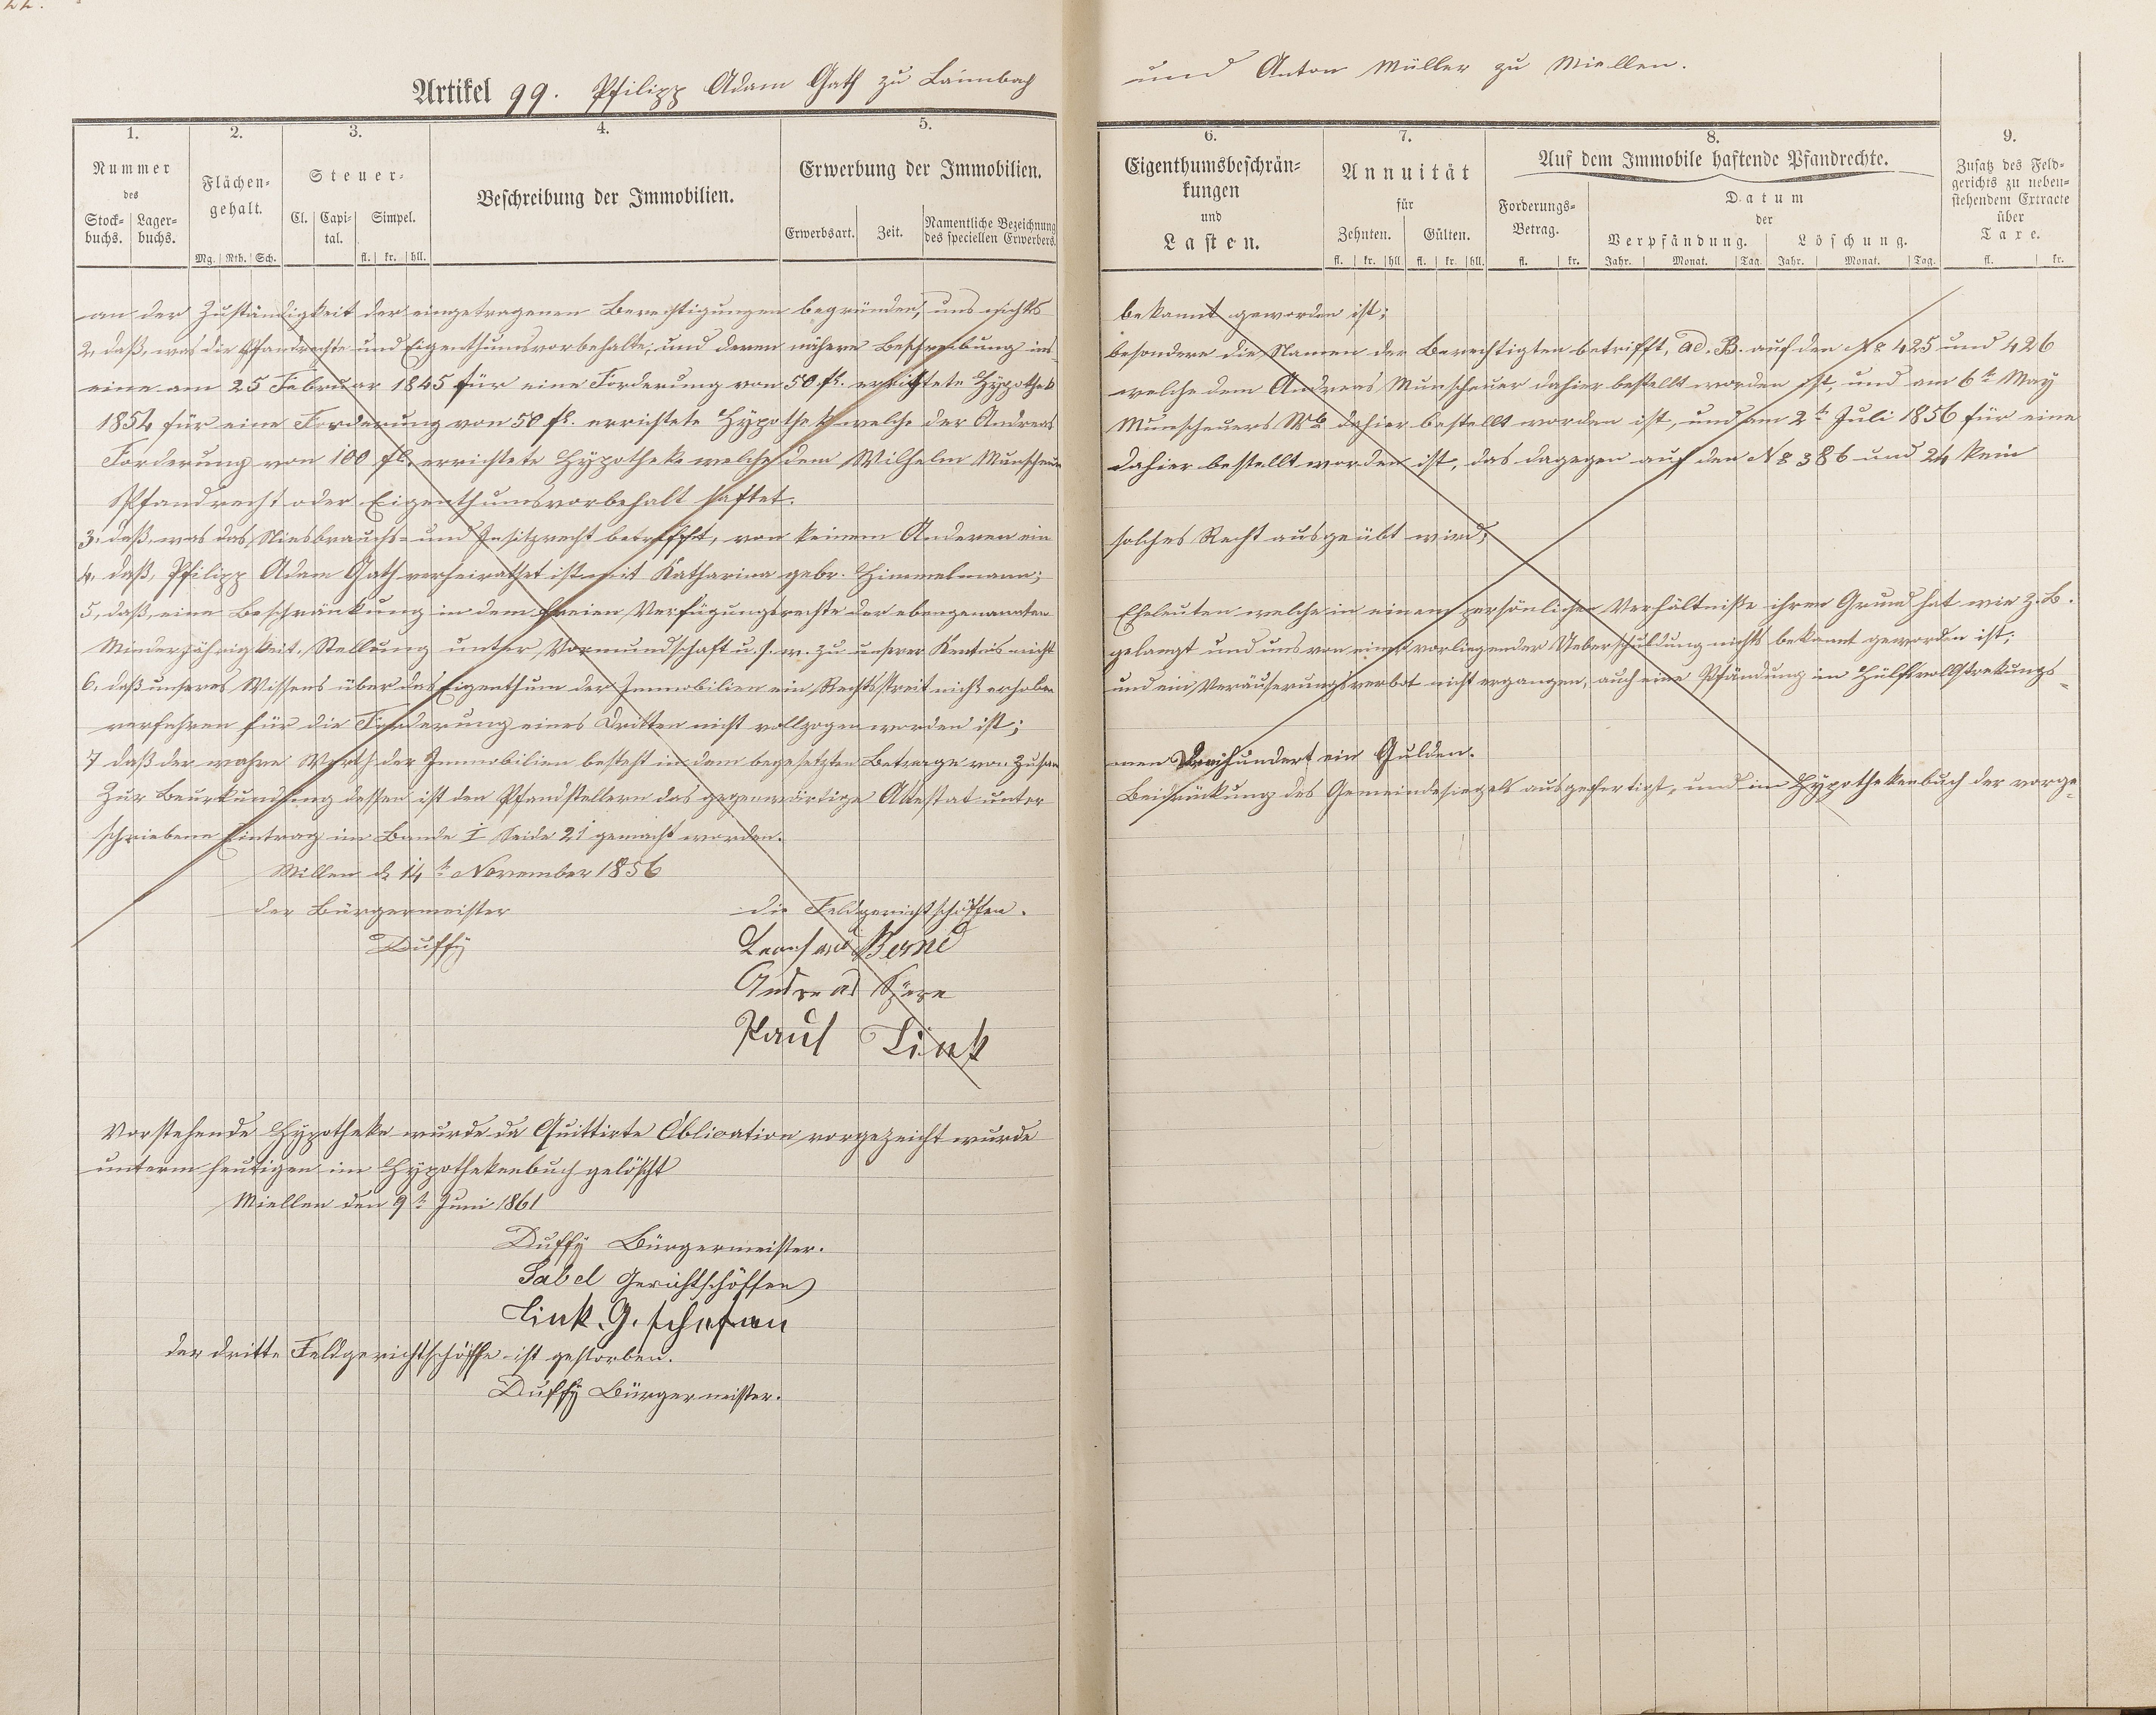 22.
Artikel 99. Philipp Adam Gath zu
und Anton Müller zu Miellen.
1. 2. 3. 4. 5. 6. 7. 8. 9.
Nummer
des
Stock-buchs. Lager-buchs.
Flächen-
gehalt.
Mg. Rth. Sch.
Steuer-
Cl. Capi-tal. Simpel.
fl. kr. hll.
Beschreibung der Immobilien.
Erwerbung der Immobilien.
Erwerbsart. Zeit. Namentliche Bezeichnung des speciellen Erwerbers.
Eigenthumsbeschrän-
kungen
und
Lasten.
Annuität
für
Zehnten. Gülten.
fl. kr. hll. fl. kr. hll.
Auf dem Immobile haftende Pfandrechte.
Forderungs-
Betrag.
fl. kr.
Datum
der
Verpfändung. Löschung.
Jahr. Monat. Tag. Jahr. Monat. Tag.
Zusatz des Feld-
gerichts zu neben-
stehendem Extracte
über
Taxe.
fl. kr.
an der Zuständigkeit der eingetragenen Berechtigungen begründen, uns nichts bekannt geworden ist;
2, daß, was die Pfandrechte und Eigenthumsvorbehalte, und deren nähere Beschreibung ins- besondere die Namen der Berechtigten betrifft, ad. B. auf den No 425 und 426
eine am 25 Februar 1845 für eine Forderung von 50 fl. errichtete Hypothek welche dem Andreas Munscheuer dahier bestellt worden ist, und am 6t May
1854 für eine Forderung von 50 fl. errichtete Hypothek welche der Andreas Munscheuers dahier bestellt worden ist, und am 2t Juli 1856 für eine
Forderung von 100 fl. errichtete Hypotheke welche dem Wilhelm Munscheuer dahier bestellt worden ist, das dagegen auf den No 386 und 24 kein
Pfandrecht oder Eigenthumsvorbehalt haftet.
3, daß, was das Niesbrauchs- und Insitzrecht betrifft, von keinem Anderen ein solches Recht ausgeübt wird;
4, daß, Philipp Adam Gath verheirathet ist mit Katharina gebr. Himmelmann;
5, daß, eine Beschränkung in dem freien Verfügungsrechte der ebengenannten Eheleuten welche in einem persönlichen Verhältniße ihren Grund hat wie z. B.
Minderjährigkeit, Stellung unter Vormundschaft u. s. w. zu unserer Kentnis nicht gelangt und uns von einer vorliegender Ueberschuldung nichts bekannt geworden ist;
6, daß unseres Wissens über das Eigenthum der Immobilien ein Rechtsstreit nicht erhoben und ein Veräuserungsverbot nicht ergangen, auch eine Pfändung im Hülfsvollstreckungs-
verfahren für die Forderung eines Dritten nicht vollzogen worden ist;
7 daß der wahre Werth der Immobilien besteht in dem beygesetzten Betrage von Zusam men Dreihundert ein Gulden.
Zur Beurkundung dessen ist den Pfandstellern das gegenwärtige Attestat unter Beidrückung des Gemeindesiegels ausgefertigt, und im Hypothekenbuch der vorge-
schriebene Eintrag im Bande I Seide 21 gemacht worden.
Millen d 14t November 1856
der Bürgermeister die Feldgerichtschöffen.
Duffy Leonhard Bernd
Andreas
Paul Link
Vorstehende Hypotheke wurde da Quittirte Obligation vorgezeicht wurde
unterm heutigen im Hypothekenbuch gelöscht
Miellen den 9t Juni 1861
Duffy Bürgermeister.
Sabel Gerichtschöffen
Link. G. schefen
der dritte Feldgerichtschöffe ist gestorben.
Duffy Bürgermeister.